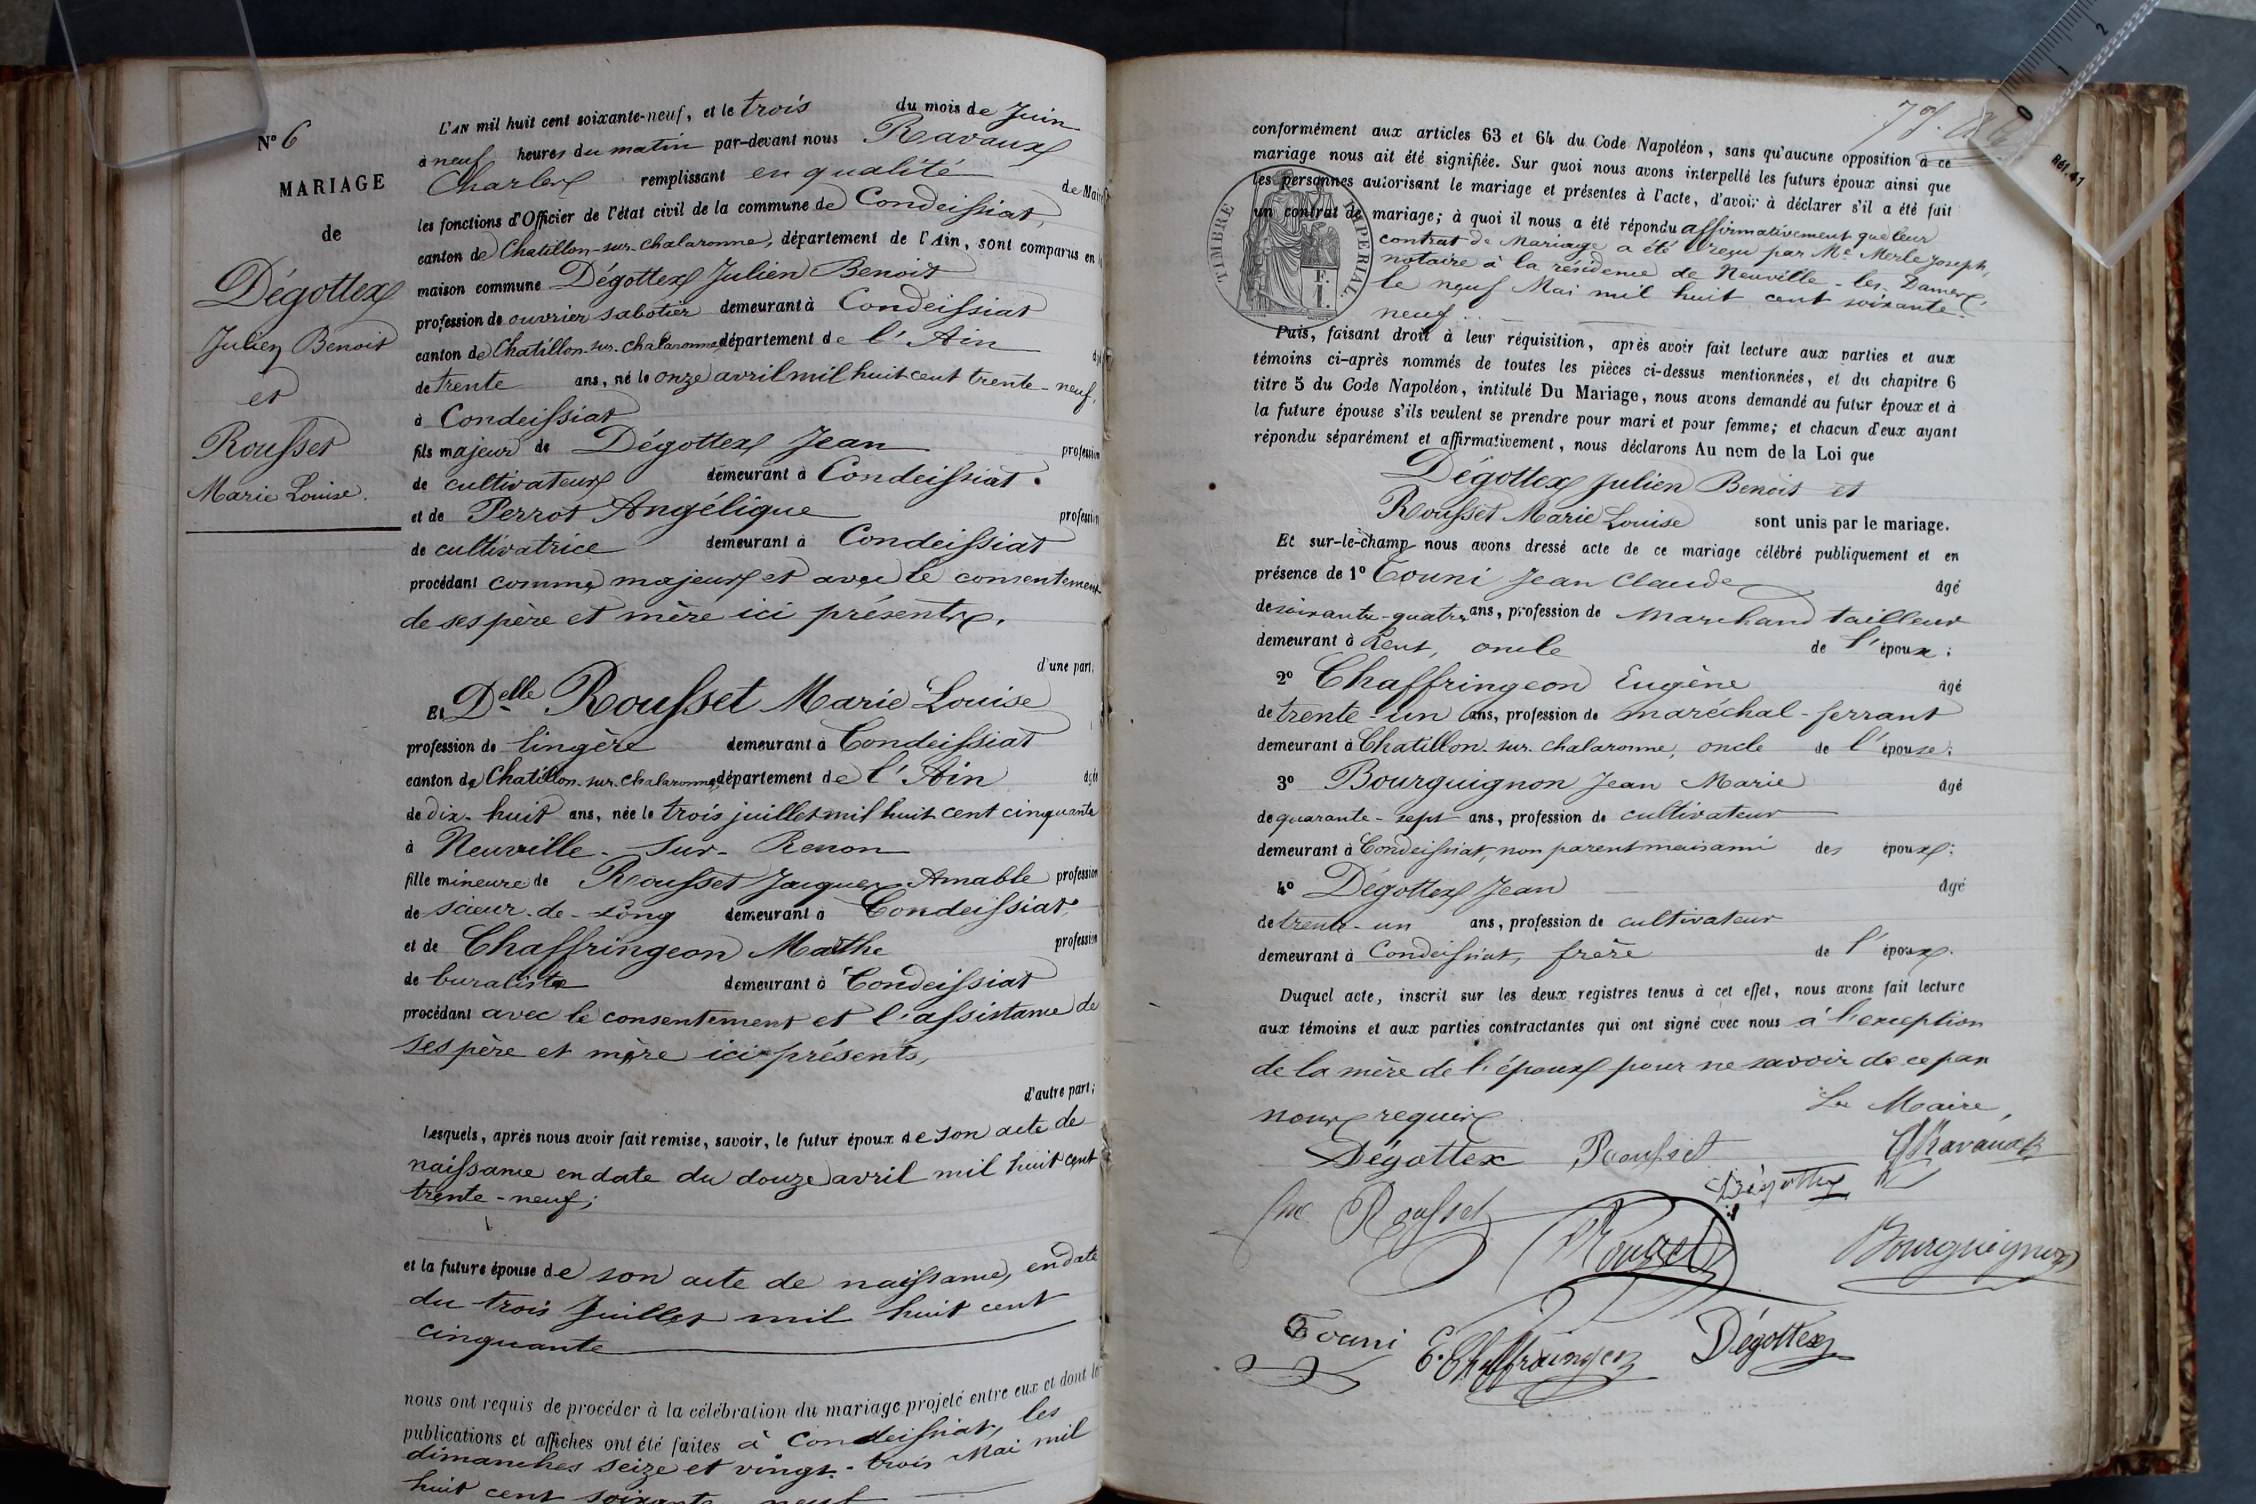 N° 6
MARIAGE
de
Dégottex
Julien Benoit
et
Rousset
Marie Louise.
L'AN mil huit cent soixante-neuf, et le trois du mois de Juin
à neuf heures du matin par-devant nous Ravaux
Charles remplissant en qualité de Maire
les fonctions d'Officier de l'état civil de la commune de Condeissiat,
canton de Chatillon-sur-Chalaronne, département de l'Ain, sont comparus en la
maison commune Dégottex Julien Benoit
profession de ouvrier sabotier demeurant à Condeissiat
canton de Chatillon-sur-Chalaronne département de l'Ain âgé
de trente ans, né le onze avril mil huit cent trente-neuf,
à Condeissiat
fils majeur de Dégottex Jean profession
de cultivateur demeurant à Condeissiat.
et de Perrot Angélique profession
de cultivatrice demeurant à Condeissiat
procédant comme majeur et avec le consentement
de ses père et mère ici présents.
d'une part;
Et Delle Rousset Marie Louise
profession de lingère demeurant à Condeissiat
canton de Chatillon-sur-Chalaronne département de l'Ain âgée
de dix-huit ans, née le trois juillet mil huit cent cinquante
à Neuville-sur-Renon
fille mineure de Rousset Jacques Amable profession
de scieur-de-long demeurant à Condeissiat,
et de Chaffringeon Marthe profession
de buraliste demeurant à Condeissiat
procédant avec le consentement et l'assistance de
ses père et mère ici présents,
d'autre part;
Lesquels, après nous avoir fait remise, savoir, le futur époux de son acte de
naissance en date du douze avril mil huit cent
trente-neuf;
et la future épouse de son acte de naissance, en date
du trois Juillet mil huit cent
cinquante
nous ont requis de procéder à la célébration du mariage projeté entre eux et dont les
publications et affiches ont été faites à Condeissiat, les
dimanches seize et vingt-trois Mai mil
huit cent soixante neuf
conformément aux articles 63 et 64 du Code Napoléon, sans qu'aucune opposition à ce
mariage nous ait été signifiée. Sur quoi nous avons interpellé les futurs époux ainsi que
les personnes autorisant le mariage et présentes à l'acte, d'avoir à déclarer s'il a été fait
un contrat de mariage; à quoi il nous a été répondu affirmativement que leur
contrat de Mariage a été reçu par Me Merle Joseph,
notaire à la résidence de Neuville-les-Dames,
le neuf Mai mil huit cent soixante-
neuf.
TIMBRE IMPERIAL
F.
I.
Puis, faisant droit à leur réquisition, après avoir fait lecture aux parties et aux
témoins ci-après nommés de toutes les pièces ci-dessus mentionnées, et du chapitre 6
titre 5 du Code Napoléon, intitulé Du Mariage, nous avons demandé au futur époux et à
la future épouse s'ils veulent se prendre pour mari et pour femme; et chacun d'eux ayant
répondu séparément et affirmativement, nous déclarons Au nom de la Loi que
Dégottex Julien Benoit et
Rousset Marie Louise sont unis par le mariage.
Et sur-le-champ nous avons dressé acte de ce mariage célébré publiquement et en
présence de 1° Touni Jean Claude âgé
de soixante-quatre ans, profession de Marchand tailleur
demeurant à Lent, oncle de l'époux;
2° Chaffringeon Eugène âgé
de trente-un ans, profession de maréchal-ferrant
demeurant à Chatillon sur Chalaronne, oncle de l'épouse;
3° Bourguignon Jean Marie âgé
de quarante-sept ans, profession de cultivateur
demeurant à Condeissiat, non parent mais ami des époux;
4° Dégottex Jean âgé
de trente-un ans, profession de cultivateur
demeurant à Condeissiat, frère de l'époux.
Duquel acte, inscrit sur les deux registres tenus à cet effet, nous avons fait lecture
aux témoins et aux parties contractantes qui ont signé avec nous à l'exception
de la mère de l'époux pour ne savoir de ce par
nous requis.
Le Maire,
Dégottex Rousset Ravaux
Dégottex
Rousset Bourguignon
Touni E. Chaffringeon Dégottex
0 1 2
Réf. 41